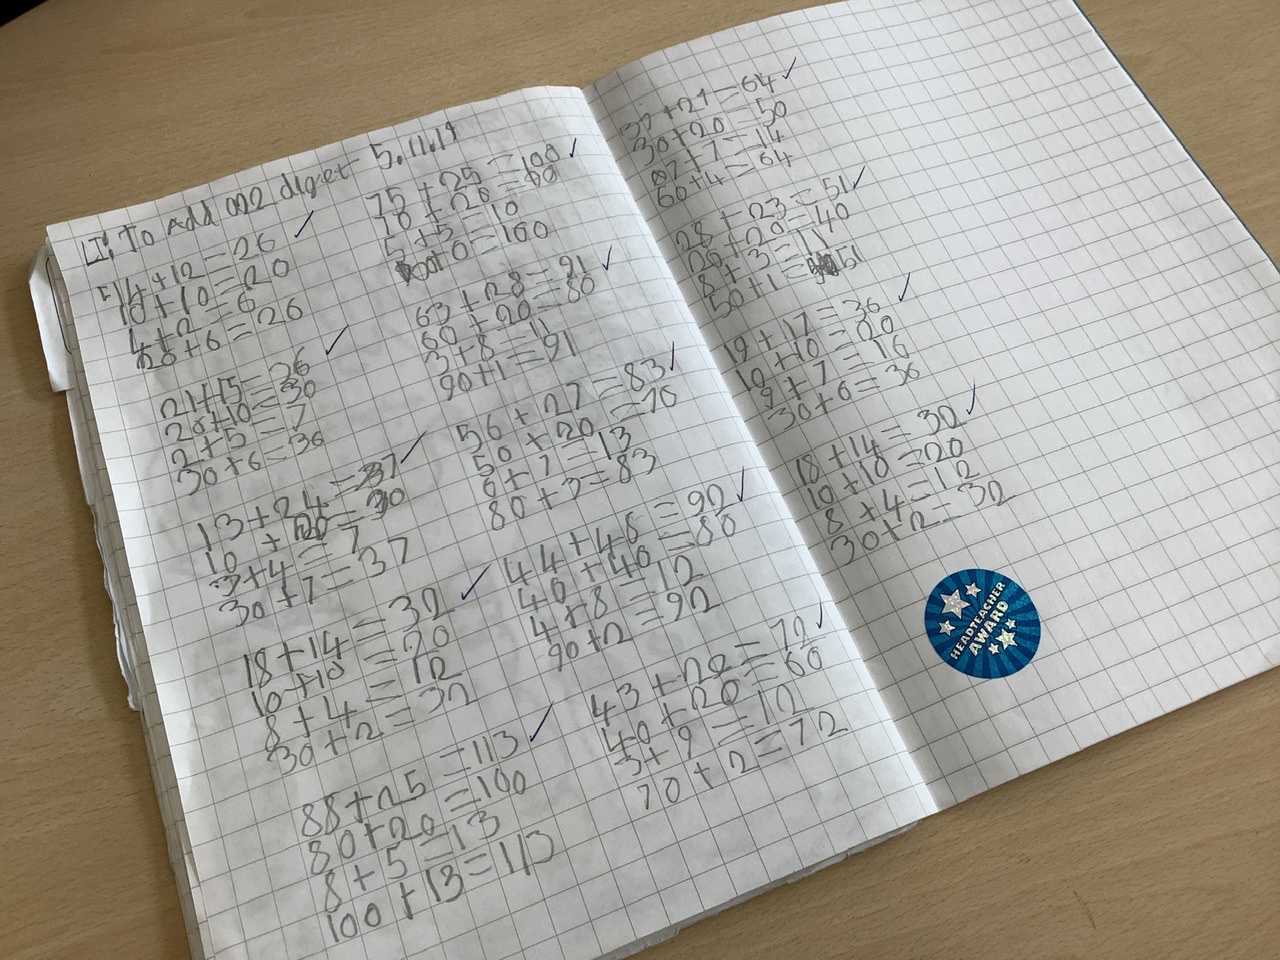 LI: To Add on 2 diget 5.11.19
14+12=26
10+10=20
4+2=6
20+6=26
21+15=36
20+10=30
2+5=7
30+6=36
13+24=37
10+20=30
3+4=7
30+7=37
18+14=32
10+10=20
8+4=12
30+2=32
88+25=113
80+20=100
8+5=13
100+13=113
75+25=100
70+20=90
5+5=10
100+0=100
63+28=91
60+20=80
3+8=11
90+1=91
56+27=83
50+20=70
6+7=13
80+3=83
44+48=92
40+40=80
4+8=12
90+2=92
43+29=72
40+20=60
3+9=12
70+2=72
37+27=64
30+20=50
7+7=14
60+4=64
28+23=51
20+20=40
8+3=11
50+1=51
19+17=36
10+10=20
9+7=16
30+6=36
18+14=32
10+10=20
8+4=12
30+2=32
HEADTEACHER
AWARD